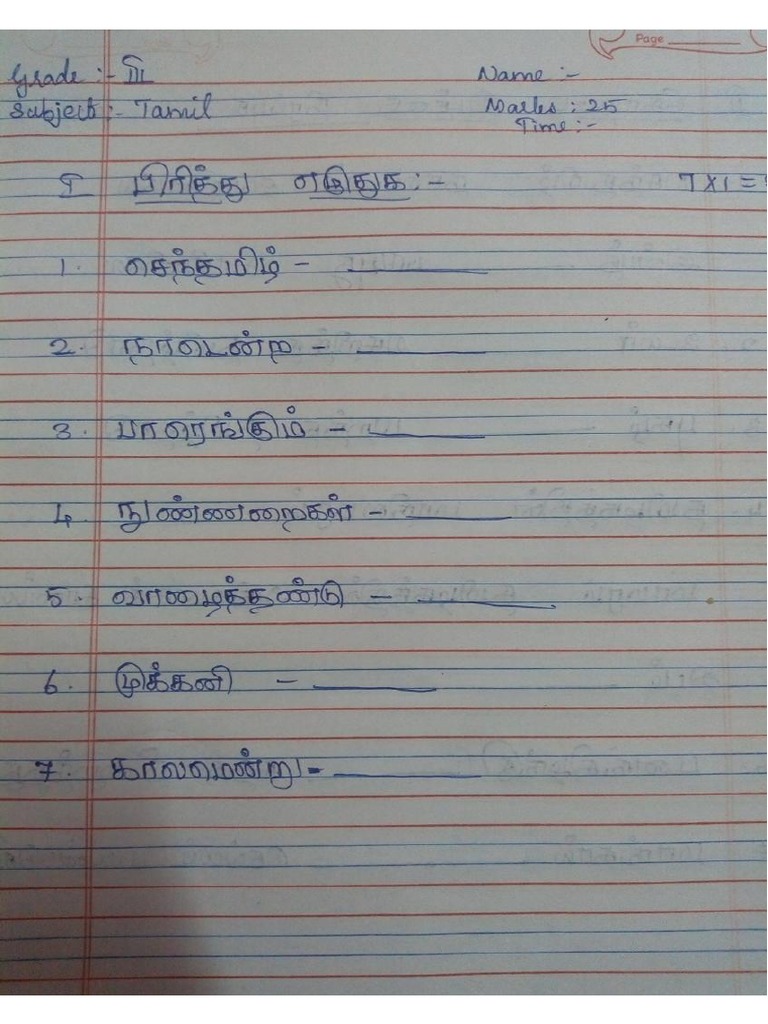 Page
Grade :- III
Name :-
Subject :- Tamil
Marks : 25
Time :-
I பிரித்து எழுதுக :-
7 x 1 =
1. செந்தமிழ் -
2. நாடென்ற -
3. பாரெங்கும் -
4. நுண்ணறைகள் -
5. வாழைத்தண்டு -
6. முக்கனி -
7. காலமென்று -